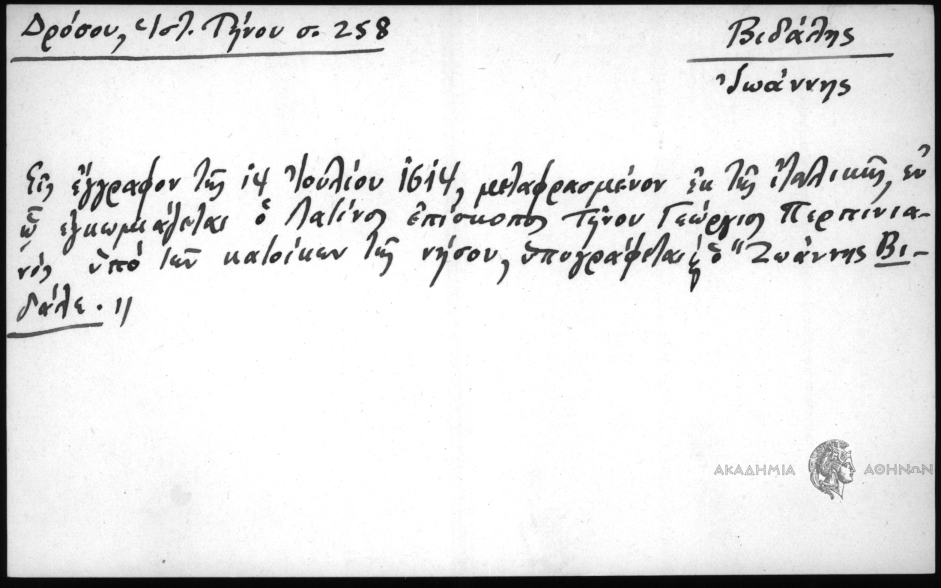 Δρόσου, Ἱστ. Τήνου σ. 258
Βιδάλης
Ἰωάννης
Εἰς ἔγγραφον τῆς 14 Ἰουλίου 1614, μεταφρασμένον ἐκ τῆς Ἰταλικῆς, ἐν
ᾧ ἐγκωμιάζεται ὁ Λατῖνος ἐπίσκοπος Τήνου Γεώργιος Περπινια-
νός ὑπό τῶν κατοίκων τῆς νήσου, ὑπογράφεται καὶ ὁ "Ζωάννης Βι-
δάλε."
ΑΚΑΔΗΜΙΑ ΑΘΗΝΩΝ